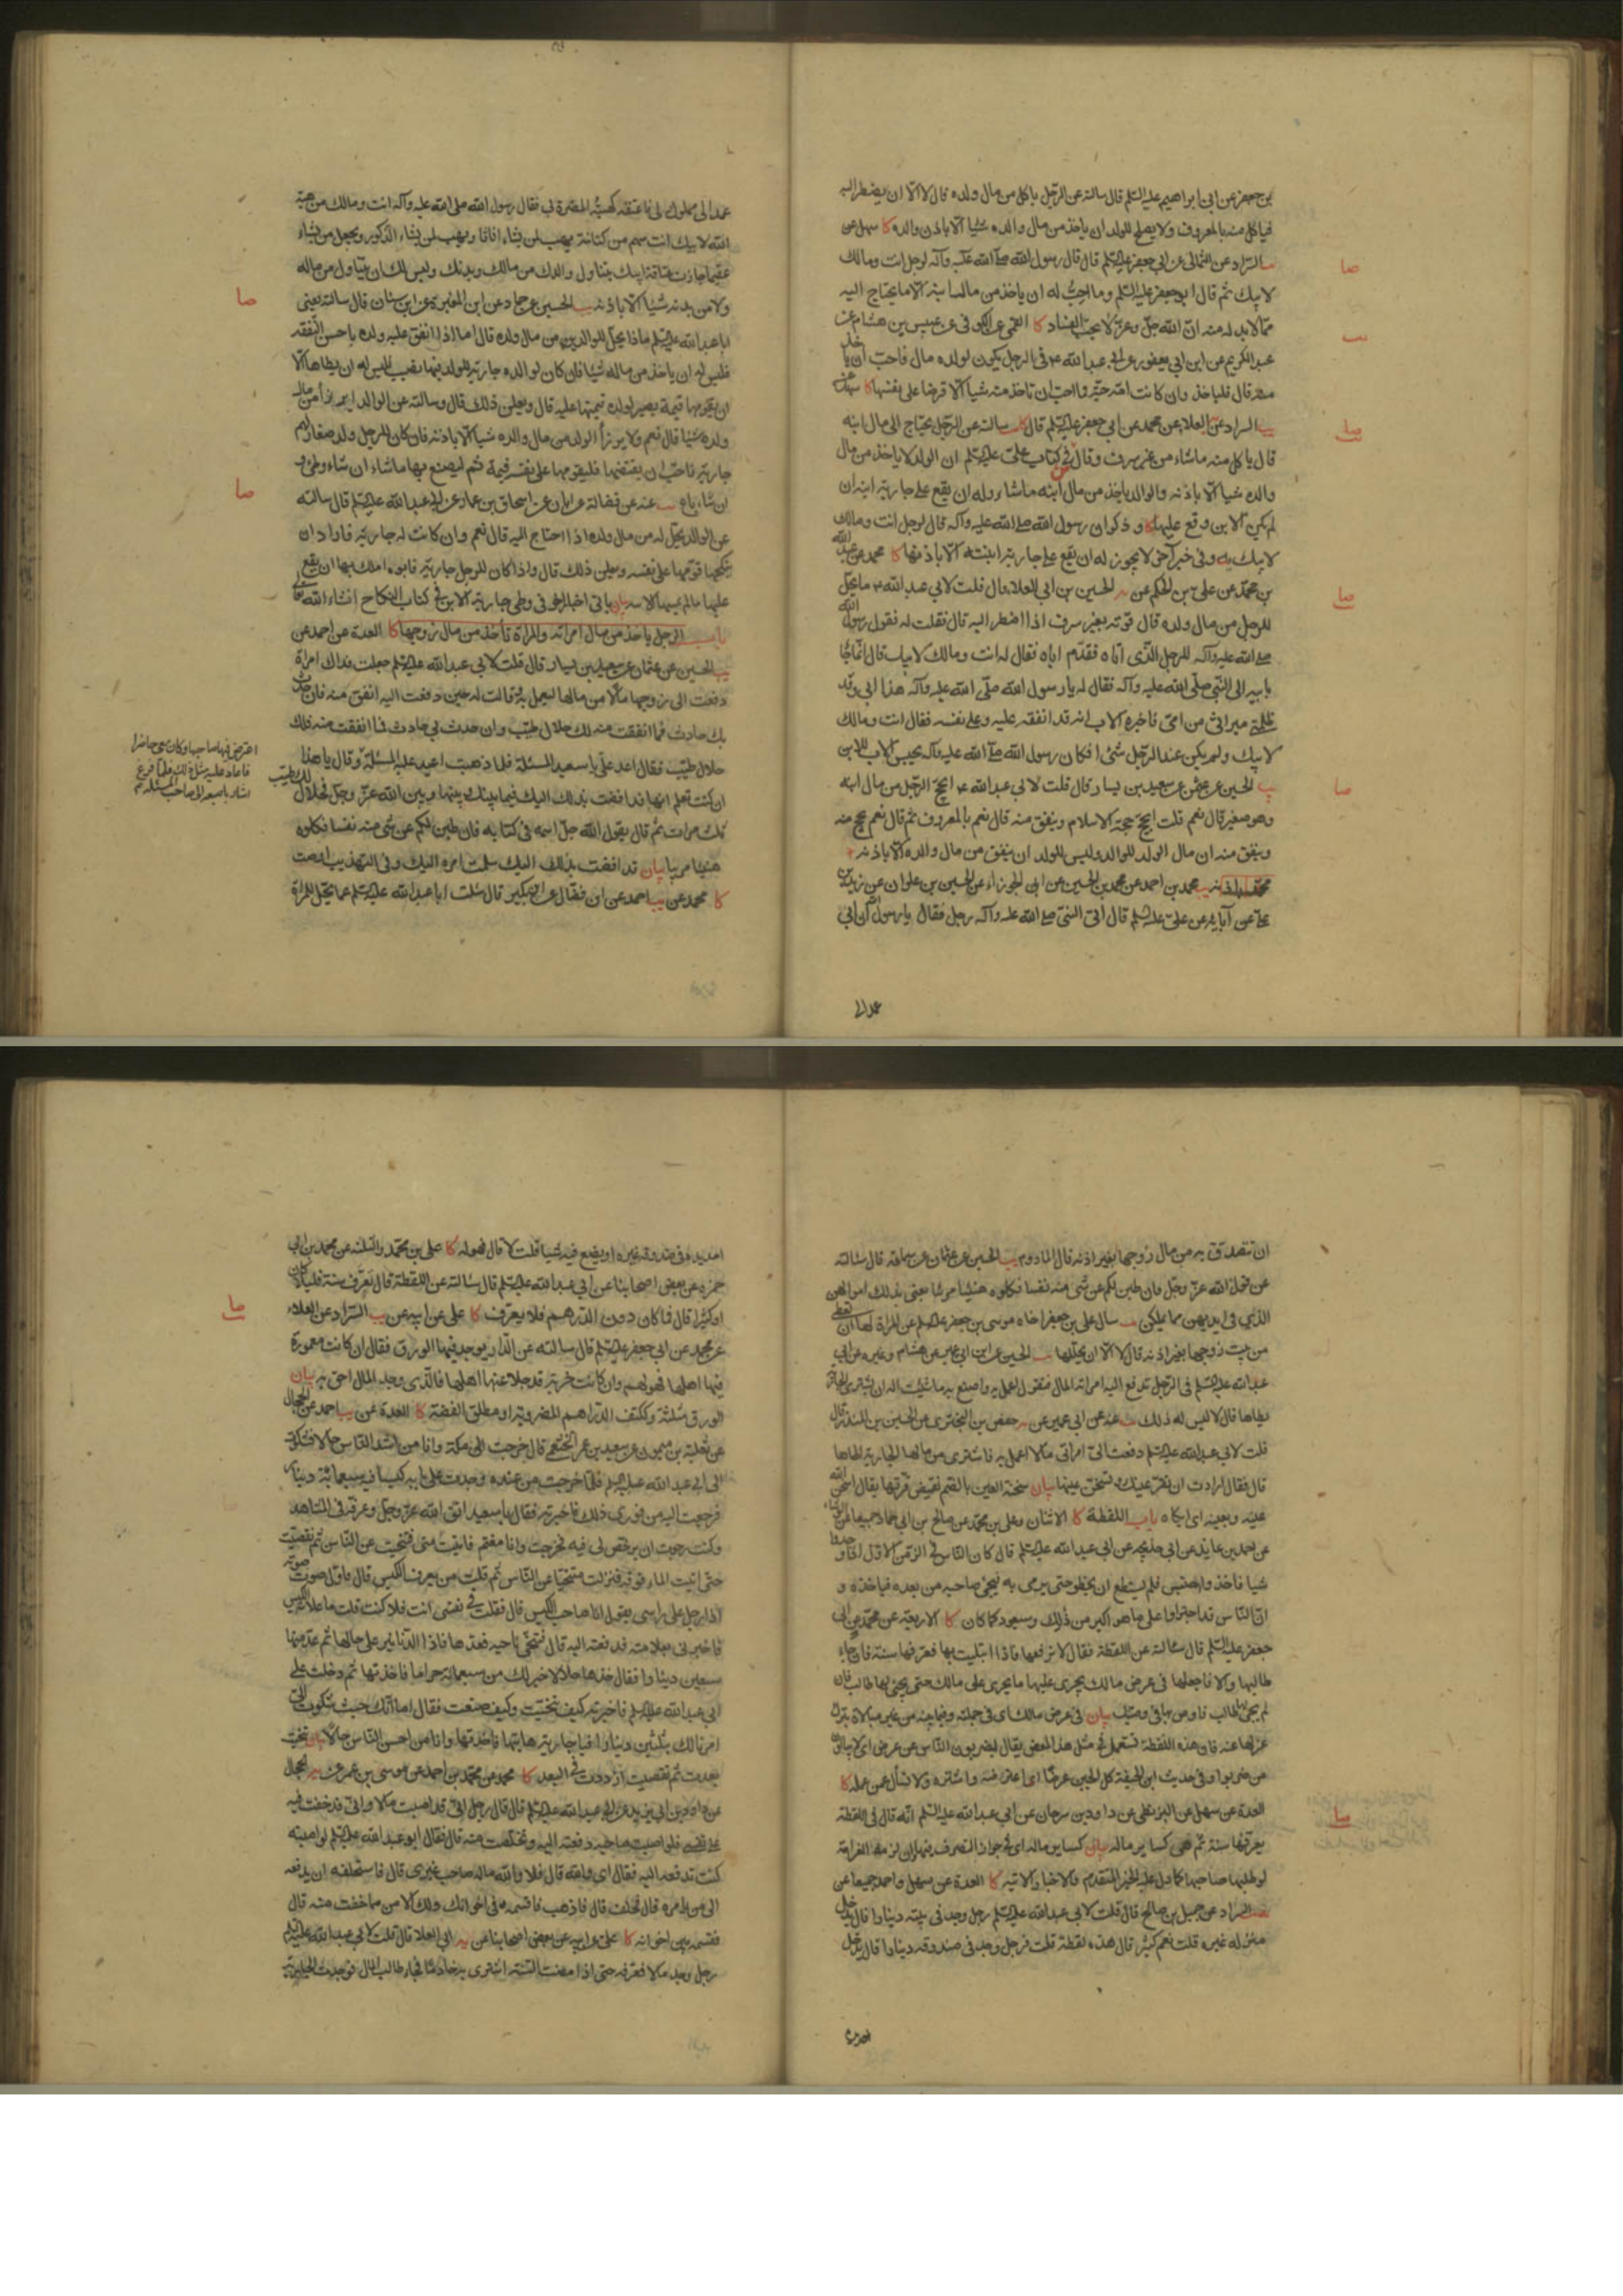 بن جعفر عن ابي ابراهيم عليه السلم قال سالته عن الرجل ياكل من مال ولده قال لا الا ان يضطر اليه
فياكل منه بالمعروف ولا يصلح للولد ان ياخذ من مال والده شيئا الا باذن والده كا سهل عن
السراد عن الثمالي عن ابي جعفر عليه السلم قال قال رسول الله صلى الله عليه وآله لرجل انت ومالك
لابيك ثم قال ابو جعفر عليه السلم وما احب له ان ياخذ من مال ابنه الا ما يحتاج اليه
مما لا بد له منه ان الله جل وعز لا يحب الفساد كا العمي عن الكوفي عن عبيس بن هشام عن
عبد الكريم عن ابن ابي يعفور عن ابي عبد الله ع في الرجل يكون لولده مال فاحب ان ياخذ
منه قال فلياخذ وان كانت امه حية فما احب ان تاخذ منه شيئا الا قرضا على نفسها كا سهل عن
يب السراد عن العلاء عن محمد عن ابي جعفر عليه السلم قال سالته عن الرجل يحتاج الى مال ابنه
قال ياكل منه ما شاء من غير سرف وقال في كتاب علي عليه السلم ان الولد لا ياخذ من مال
والده شيئا الا باذنه والوالد ياخذ من مال ابنه ما شاء وله ان يقع على جارية ابنه ان
لم يكن الابن وقع عليها وذكر ان رسول الله صلى الله عليه وآله قال لرجل انت ومالك
لابيك يه وفي خبر آخر لا يجوز له ان يقع على جارية ابنته الا باذنها كا محمد عن عبد الله
بن محمد عن علي بن الحكم عن يه الحسين بن ابي العلاء قال قلت لابي عبد الله ع ما يحل
للرجل من مال ولده قال قوته بغير سرف اذا اضطر اليه قال فقلت له فقول رسول الله
صلى الله عليه وآله للرجل الذي اتاه فقدم اباه فقال له انت ومالك لابيك قال انما جاء
بابيه الى النبي صلى الله عليه وآله فقال له يا رسول الله صلى الله عليه وآله هذا ابي وقد
ظلمني ميراثي من امي فاخبره الاب انه قد انفقه عليه وعلى نفسه فقال انت ومالك
لابيك ولم يكن عند الرجل شئ افكان رسول الله صلى الله عليه وآله يحبس الاب للابن
يب الحسين عن عثمن عن سعيد بن يسار قال قلت لابي عبد الله ع ايحج الرجل من مال ابنه
وهو صغير قال نعم قلت ايحج حجة الاسلام وينفق منه قال نعم بالمعروف ثم قال نعم يحج منه
وينفق منه ان مال الولد للوالد وليس للولد ان ينفق من مال والده الا باذنه
يب محمد بن احمد عن محمد بن الحسين عن ابي الجوزاء عن الحسين بن علوان عن زيد بن
علي عن آبائه عن علي عليه السلم قال اتى النبي صلى الله عليه وآله رجل فقال يا رسول الله ان ابي
عمد الى
عمد الى مملوك لي فاعتقه كهيئة المضرة لي فقال رسول الله صلى الله عليه وآله انت ومالك من هبة
الله لابيك انت سهم من كنانته يهب لمن يشاء اناثا ويهب لمن يشاء الذكور ويجعل من يشاء
عقيما جازت عتاقة ابيك يتناول والدك من مالك وبدنك وليس لك ان تتناول من ماله
ولا من بدنه شيئا الا باذنه يب الحسين عن حماد عن ابن المغيرة عن ابن سنان قال سالته يعني
ابا عبد الله عليه السلم ماذا يحل للوالد من مال ولده قال اما اذا انفق عليه ولده باحسن النفقة
فليس له ان ياخذ من ماله شيئا فان كان لوالده جارية للولد فيها نصيب فليس له ان يطاها الا
ان يقومها قيمة يصير لولده قيمتها عليه قال ويعلن ذلك قال وسالته عن الوالد ايرزأ من مال
ولده شيئا قال نعم ولا يرزأ الولد من مال والده شيئا الا باذنه فان كان للرجل ولد صغار لهم
جارية فاحب ان يقتضيها فليقومها على نفسه قيمة ثم ليصنع بها ما شاء ان شاء وطئ و
ان شاء باع يب عنه عن فضالة عن ابان عن اسحاق بن عمار عن ابي عبد الله عليه السلم قال سالته
عن الوالد يحل له من مال ولده اذا احتاج اليه قال نعم وان كانت له جارية فاراد ان
ينكحها قومها على نفسه ويعلن ذلك قال واذا كان للرجل جارية فابوه املك بها ان يقع
عليها ما لم يمسها الابن بيان ياتي اخبار اخر في وطي جارية الابن في كتاب النكاح انشاء الله
باب الرجل ياخذ من مال امراته والمراة تاخذ من مال زوجها كا العدة عن احمد عن
يب الحسين عن عثمان عن سعيد بن يسار قال قلت لابي عبد الله عليه السلم جعلت فداك امراة
دفعت الى زوجها مالا من مالها ليعمل به وقالت له حين دفعت اليه انفق منه فان حدث
بك حادث فما انفقت منه لك حلال طيب وان حدث بي حادث فما انفقت منه فلك
حلال طيب فقال اعد علي يا سعيد المسئلة فلما ذهبت اعيد عليه المسئلة
اعترض فيها صاحبها وكان معي حاضرا
فاعاد عليه مثل ذلك فلما فرغ
اشار باصبعه الى صاحب المسئلة
وقال يا هذا
ان كنت تعلم انها قد افضت بذلك اليك فيما بينك وبينها وبين الله عز وجل فحلال طيب
ثلث مرات ثم قال يقول الله جل اسمه في كتابه فان طبن لكم عن شئ منه نفسا فكلوه
هنيئا مريئا بيان قد افضت بذلك اليك سلمت امره اليك وفي التهذيب
كا محمد عن يب احمد عن ابن فضال عن ابن بكير قال سئلت ابا عبد الله عليه السلم عما يحل للمراة
ان تتصدق به من مال زوجها بغير اذنه قال المادوم يب الحسين عن عثمان عن سماعة قال سئالته
عن قول الله عز وجل فان طبن لكم عن شئ منه نفسا فكلوه هنيئا مريئا يعني بذلك اموالهن
الذي في ايديهن مما يملكن يب سال علي بن جعفر اخاه موسى بن جعفر عليه السلم عن المراة لها ان تعطي
من بيت زوجها بغير اذنه قال لا الا ان يحللها يب الحسين عن ابن ابي عمير عن هشام وغيره عن ابي
عبد الله عليه السلم في الرجل تدفع اليه امراته المال فتقول اعمل به واصنع به ما شئت اله ان يشتري الجارية
يطاها قال لا ليس له ذلك يب عنه عن ابي عمير عن يه حفص بن البختري عن الحسين بن المنذر قال
قلت لابي عبد الله عليه السلم دفعت الي امراتي مالا اعمل به فاشتري من مالها الجارية اطاها
قال فقال ارادت ان تقر عينك وتسخن عينها بيان سخنة العين بالضم نقيض قرتها يقال اسخن الله
عينه وبعينه اي ابكاه باب اللقطة كا الاثنان وعلي بن محمد عن صالح بن ابي حماد جميعا عن الوشاء
عن احمد بن عايذ عن ابي خديجه عن ابي عبد الله عليه السلم قال كان الناس في الزمن الاول اذا وجدوا
شيئا فاخذوه احتبس فلم يستطع ان يخطو حتى يرمي به فيجئ صاحبه من بعده فياخذه و
ان الناس قد اجتراوا على ما هو اكبر من ذلك وسيعود كما كان كا الاربعة عن محمد عن ابي
جعفر عليه السلم قال سئالته عن اللقطة فقال لا ترفعها فاذا ابتليت بها فعرفها سنة فان جاء
طالبها والا فاجعلها في عرض مالك يجري عليها ما يجري على مالك حتى يجئ لها طالب فان
لم يجئ لها طالب فاوص بها في وصيتك بيان في عرض مالك اي في جملته وفيما بينه من غير مبالاة بترك
عزلها عنه فان هذه اللفظة تستعمل في مثل هذا المعنى يقال يضربون الناس عن عرض اي لا يبالون
من ضربوا وفي حديث ابن الحنفية كل الجبن عرضا اي اعترضه واشتره ولا تسأل عمن عمله كا
العدة عن سهل عن البزنطي عن داود بن سرحان عن ابي عبد الله عليه السلم انه قال في اللقطة
يعرفها سنة ثم هي كساير ماله بيان كساير ماله اي في جواز التصرف فيها وان لزمته الغرامة
لو طلبها صاحبها كما دل عليه الخبر المتقدم والاخبار الاتية كا العدة عن سهل واحمد جميعا عن
السراد عن جميل بن صالح قال قلت لابي عبد الله عليه السلم رجل وجد في بيته دينارا قال يدخل
منزله غيره قلت نعم كثير قال هذه لقطة قلت فرجل وجد في صندوقه دينارا قال يدخل
احد يده
احد يده في صندوقه غيره او يضع فيه شيئا قلت لا قال فهو له كا علي بن محمد والثلثة عن محمد بن ابي
حمزه عن بعض اصحابنا عن ابي عبد الله عليه السلم قال سئالته عن اللقطة قال تعرف سنة قليلا كان
او كثيرا قال فما كان دون الدرهم فلا يعرف كا علي عن ابيه عن يب السراد عن العلاء
عن محمد عن ابي جعفر عليه السلم قال سالته عن الدار يوجد فيها الورق فقال ان كانت معمورة
فيها اهلها فهو لهم وان كانت خربة قد جلا عنها اهلها فالذي وجد المال احق به بيان
الورق مثلثة وككتف الدراهم المضروبة او مطلق الفضة كا العدة عن يب احمد عن الحجال
عن ثعلبة بن ميمون عن سعيد بن عمر الخثعمي قال خرجت الى مكة وانا من اشد الناس حالا فشكوت
الى ابي عبد الله عليه السلم فلما خرجت من عنده وجدت على بابه كيسا فيه سبعمائة دينار
فرجعت اليه من فوري ذلك فاخبرته فقال يا سعيد اتق الله عز وجل وعرفه في المشاهد
وكنت رجوت ان يرخص لي فيه فخرجت وانا مغتم فاتيت منى فتنحيت عن الناس ثم تقصيت
حتى اتيت الماء فوقه فنزلت متنحيا عن الناس ثم قلت من يعرف الكيس قال فاول صوت صوته
اذا رجل على راسي يقول انا صاحب الكيس قال فقلت في نفسي انت فلا كنت قلت ما علامة الكيس
فاخبرني بعلامته فدفعته اليه قال فتنحى ناحيه فعدها فاذا الدنانير على حالها ثم عد منها
سبعين دينارا فقال خذها حلالا خير لك من سبعمائة حراما فاخذتها ثم دخلت على
ابي عبد الله عليه السلم فاخبرته كيف تنحيت وكيف صنعت فقال اما انك حيث شكوت الي
امرنا لك بثلثين دينارا يا جارية هاتيها فاخذتها وانا من احسن الناس حالا بيان تنحيت
بعدت ثم تقصيت ازددت في البعد كا محمد عن محمد بن احمد عن موسى بن عمر عن يه الحجال
عن داود بن ابي يزيد عن ابي عبد الله عليه السلم قال قال رجل اني قد اصبت مالا واني قد خفت فيه
على نفسي فلو اصبت صاحبه دفعته اليه وتخلصت منه قال فقال ابو عبد الله عليه السلم لو اصبته
كنت تدفعه اليه فقال اي والله قال فلا والله ماله صاحب غيري قال فاستحلفه ان يدفعه
الى من يامره قال فحلف قال فاذهب فاقسمه في اخوانك ولك الامن مما خفت منه قال
فقسمه بين اخوانه كا علي عن ابيه عن بعض اصحابنا عن يه ابي العلا قال قلت لابي عبد الله عليه السلم
رجل وجد مالا فعرفه حتى اذا مضت السنة اشترى به خادما فجاء طالب المال فوجد الجارية